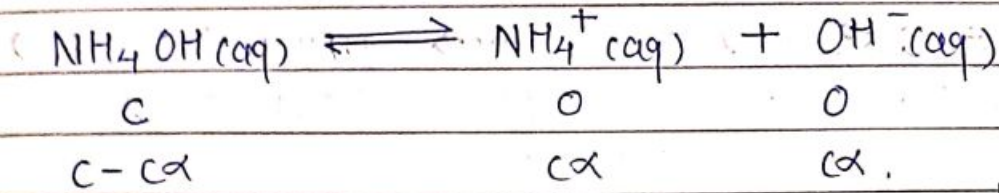 NH₄OH(aq) ⇌ NH₄⁺(aq) + OH⁻(aq)
C O O
C-Cα Cα Cα.